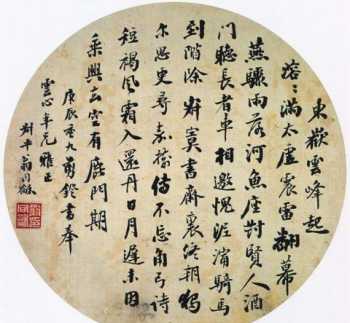 東嶽雲峰起
溶〻滿太虛震雷翻幕
燕驟雨落河魚座對賢人酒
門聽長者車相邀愧泥濘騎馬
到階除寂寞書齋裏終朝獨
尔思更尋嘉樹傳不忘角弓詩
短褐風霜入還丹日月遲未因
乘興去空有鹿門期
庚辰九鐙書奉
雲心年兄雅正
叔平翁同龢